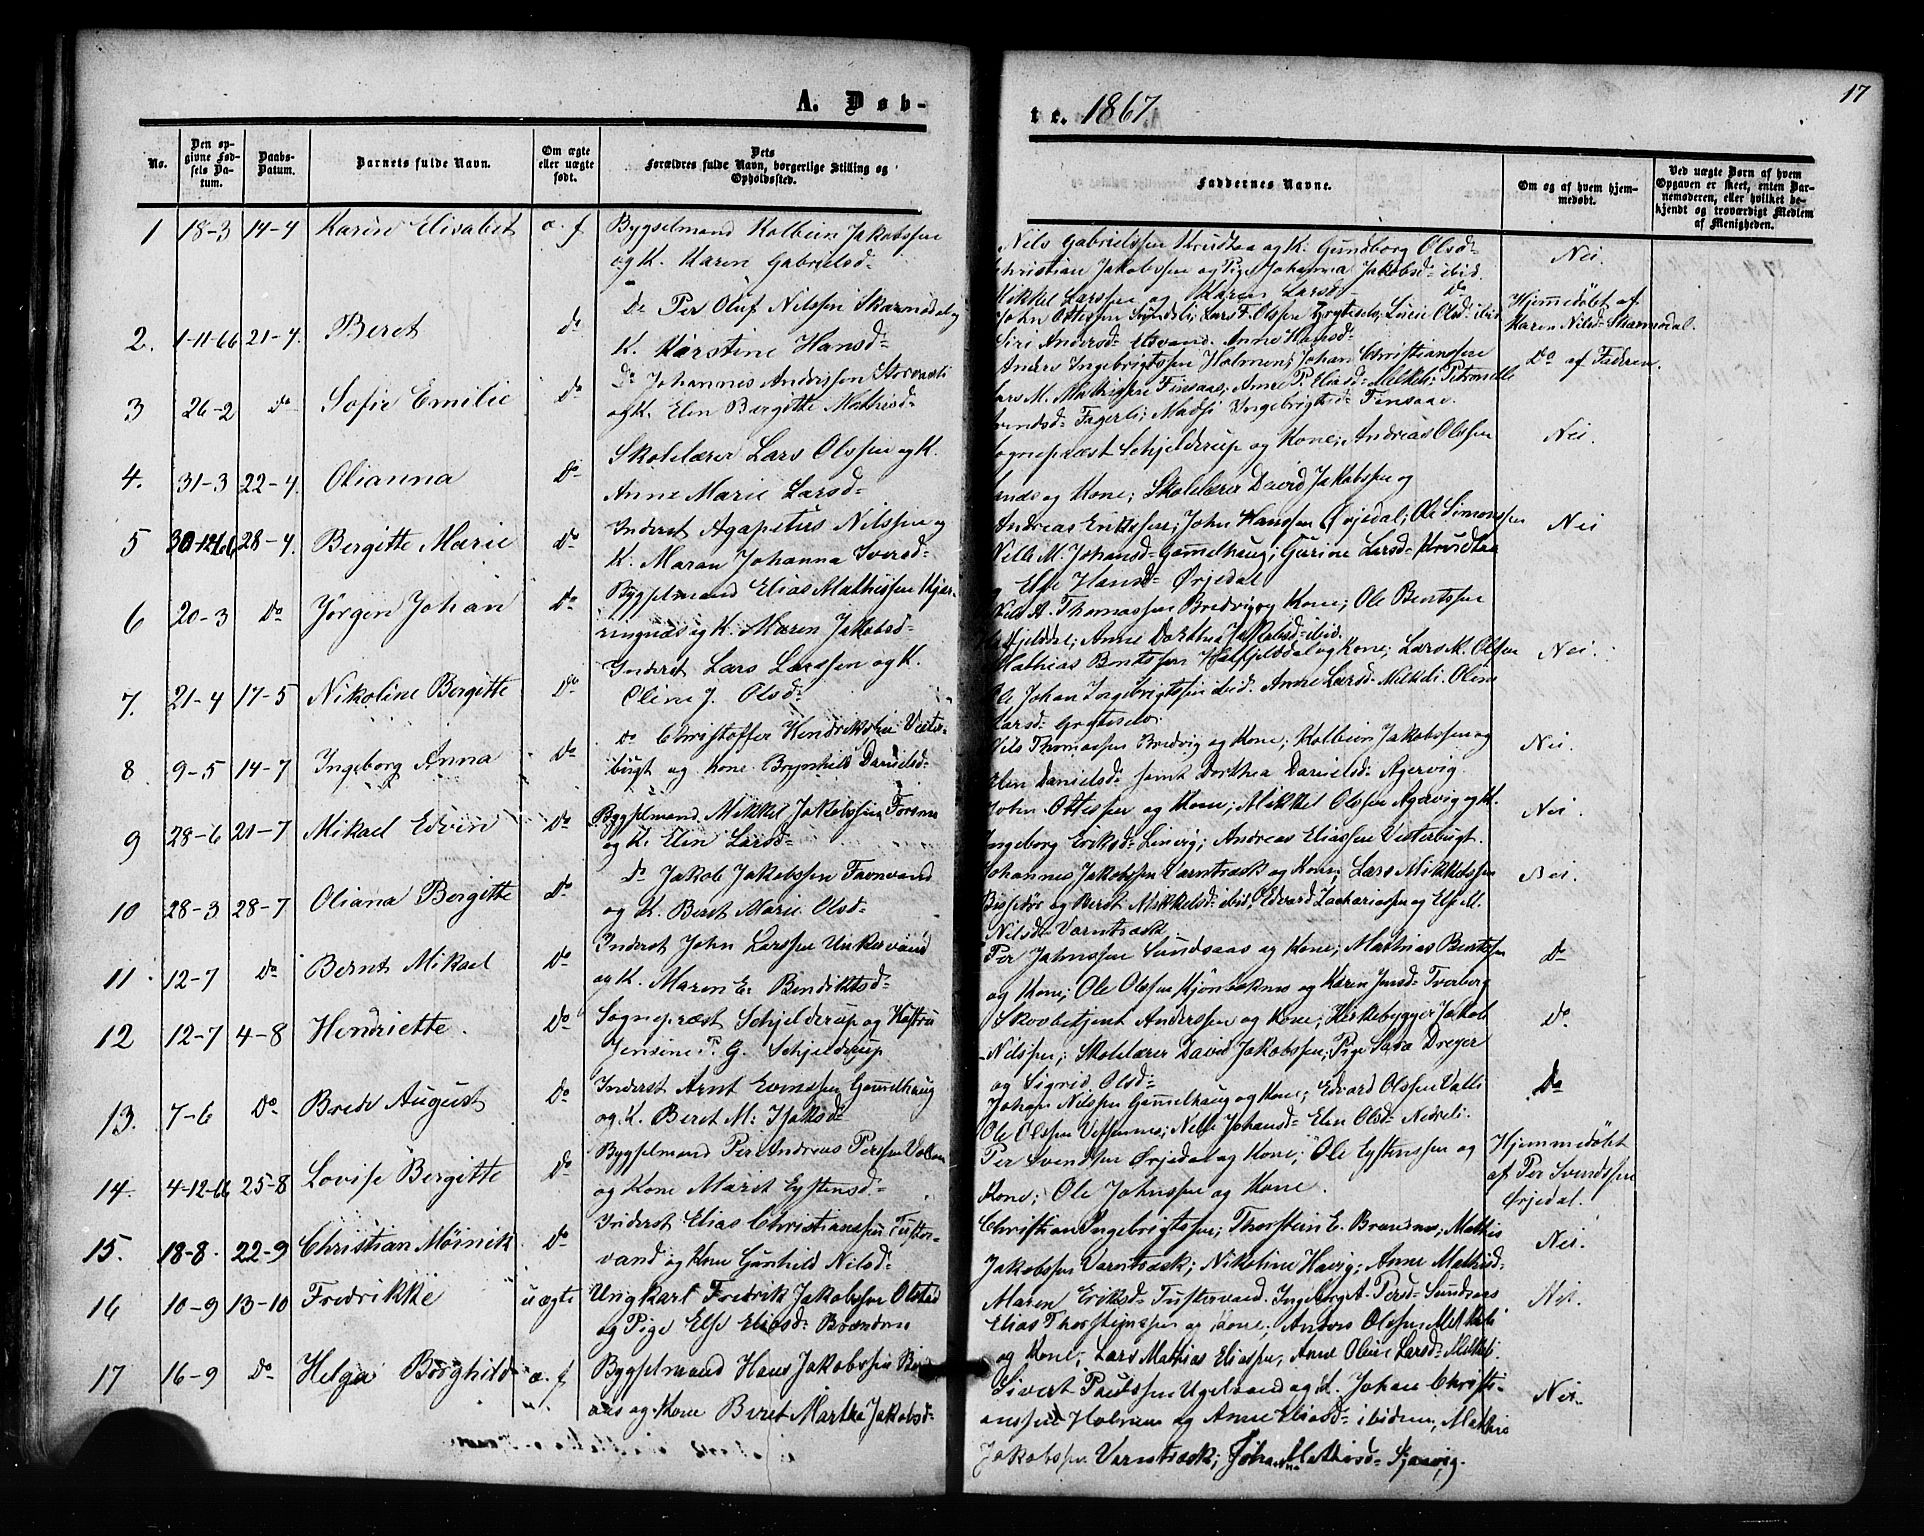 17
A. Døb-
te. 1867
No.
Den op-
givne Fød-
sels Da-
tum.
Daabs-
Datum.
Barnets fulde Navn.
Om ægte
eller uægte
født.
Dets
Forældres fulde Navn, borgerlige Stilling og
Opholdssted.
Faddernes Navne.
Om og af hvem hjem-
medøbt.
Ved uægte Børn af hvem
Opgaven er skeet, enten Bar-
nemoderen, eller hvilket be-
kjendt og troværdigt Medlem
af Menigheden.
1 18-3 14-4 Karen Elisabet æ. f. Bygselmand Kolbein Jakobssen
og K. Karen Gabrielsd=
Nils Gabrielssen Krudtaa og K. Gundborg Olsd=
Christian Jakobssen og Pige Johanna Jakobsd= ibid.
Mikkel Larssen og Maren Larsd=
Nei.
2. 1-11-66 21-4. Beret Do Do Per Oluf Nilssen Skarmodal og
K. Kirstine Hansd=
John Ottessen Lars F. Olsen Grytselv; Olsd= ibid.
Siri Andersd= Anne Hansd=
Hjemmedøbt af
Karen Nilsd= Skarmodal.
3 26-2 Do Sofie Emilie Do Do Johannes Anderssen Storvasli
og K. Elen Bergitte Mathisd=
Anders Ingebrigtssen Holmen; Johan Christianssen
Lars M. Mathissen Finsaas; Anne P. Eliasd= Mekkeli; Petronelle
Fagerli; Ingebrigtsd= Finsaas.
Do af Faderen.
4. 31-3 22-4. Olianna Do Skolelærer Lars Olssen og K.
Anne Marie Larsd=
Sognepræst Schjelderup og Kone; Andreas Olssen
og Kone; Skolelærer David Jakobssen og
Nei.
5 30-12-66 28-4. Bergitte Marie Do Inderst Agapetus Nilssen og
K. Maran Johanna Iversd=
Andreas Erikssen; John Hanssen Ørjedal; Ole Simonssen
Nille M. Johansd= Gammelhaug; Gurine Larsd= Krudtaa
Else Hansd= Ørjedal
Nei
6 20-3 Do Jørgen Johan Do Bygselmand Elias Mathissen Kjær-
ringnæs og K. Maren Jakobsd=
Nils A. Thomassen Bredvig og Kone; Ole Bentssen
Anne Dorthea Jakobsd= ibid.
Nei.
7. 21-4 17-5 Nikoline Bergitte Do Inderst Lars Larssen og K.
Oline J. Olsd=
Mathias Bentssen Hatfjelddal og Kone; Lars M. Olssen
Ole Johan Ingebrigtssen ibid. Anne Larsd= Mikkeli. Oline
Larsd= Grytselv.
8 9-5 14-7 Ingeborg Anna Do Do Christoffer Hendrikssen Vester-
bugt og Kone Brynhild Danielsd=
Nils Thomassen Bredvig og Kone; Kolbein Jakobssen og
Elen Danielsd= samt Dorthea Danielsd= Agervig.
Nei.
9 28-6 21-7 Mikael Edvin Do Bygselmand Mikkel Jakobssen Forsmo
og K. Elen Larsd=
John Ottessen og Kone; Mikkel Olssen Agervig og K.
Ingeborg Eriksd= Linvig; Andreas Eliassen Vesterbugt.
Nei.
10 28-3 28-7 Oliana Bergitte Do Do Jakob Jakobssen Favnvand
og K. Beret Marie Olsd=
Johannes Jakobssen Varntræsk og Kone; Lars Mikkelssen
Bisseter og Beret Mikkelsd= ibid; Edvard Zachariassen og Else M.
Nilsd= Varntræsk.
Nei.
11 12-7 Do Bernt Mikael Do Inderst John Larssen Unkervand
og K. Maren E. Bendiktsd=
Per Johnssen Sundsaas og Kone; Mathias Bentssen
og Kone; Ole Olssen og Karen Jonsd= Tverberg
Do
12 12-7 4-8 Henriette. Do Sognepræst Schjelderup og Hustru
Jensine P. G. Schjelderup
Skovbetjent Anderssen og Kone; Kirkebygger Jakob
Nilssen; Skolelærer David Jakobssen; Pige Sara Dreyer
og Sigrid Olsd=
Do.
13. 7-6 Do Brede August Do Inderst Arnt Evenssen Gammelhaug
og K. Beret M. Isaksd=
Johan Nilssen Gammelhaug og Kone; Edvard Olssen Valli
Ole Olssen Johansd= Elen Olsd= Nedreli.
Do
14. 4-12-66 25-8 Lovise Bergitte Do Bygselmand Per Andreas Perssen Volden
og Kone Maret Eystensd=
Per Svendssen Ørjedal og Kone; Ole Eystenssen og
Kone; Ole Johnssen og Kone.
Hjemmedøbt
af Per Svendssen
Ørjedal.
15. 18-8. 22-9 Christian Meinik Do Inderst Elias Christianssen Tuster-
vand og Kone Gunhild Nilsd=
Christian Ingebrigtssen; Thorstein E. Brændmo; Mathis
Jakobssen Varntræsk; Nikoline Havig; Anne Mathisd=
Nei.
16 10-9 13-10 Fredrikke uægte Ungkarl Fredrik Jakobssen Olstad
og Pige Else Eliasd= Brændmo
Maren Eriksd= Tustervand. Ingeborg A. Persd= Sundsaas
Elias Thorsteinssen og Kone; Anders Olssen Mekkeli
og Kone; Lars Mathias Eliassen; Anne Oline Larsd= Mekkeli.
Nei.
17 16-9 Do Helga Borghild æ. f. Bygselmand Hans Jakobssen
aas og Kone Beret Martha Jakobsd=
Sivert Paulssen Ugelvand og K. Johan Christi-
anssen Holmen og Anne Eliasd= ibidem; Mathis
Jakobssen Varntræsk; Johanna Mathisd=
Nei.